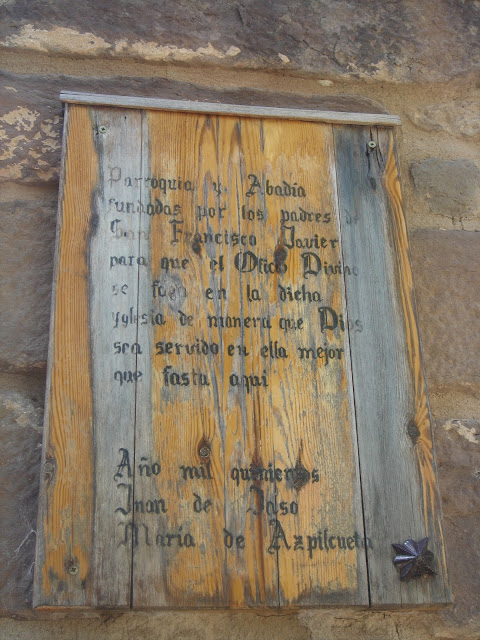 Parroquia y Abadía
fundadas por los padres de
San Francisco Javier
para que el Oficio Divino
se faga en la dicha
yglesia de manera que Dios
sea servido en ella mejor
que fasta aqui
Año mil quinientos
Juan de Jaso
María de Azpilcueta